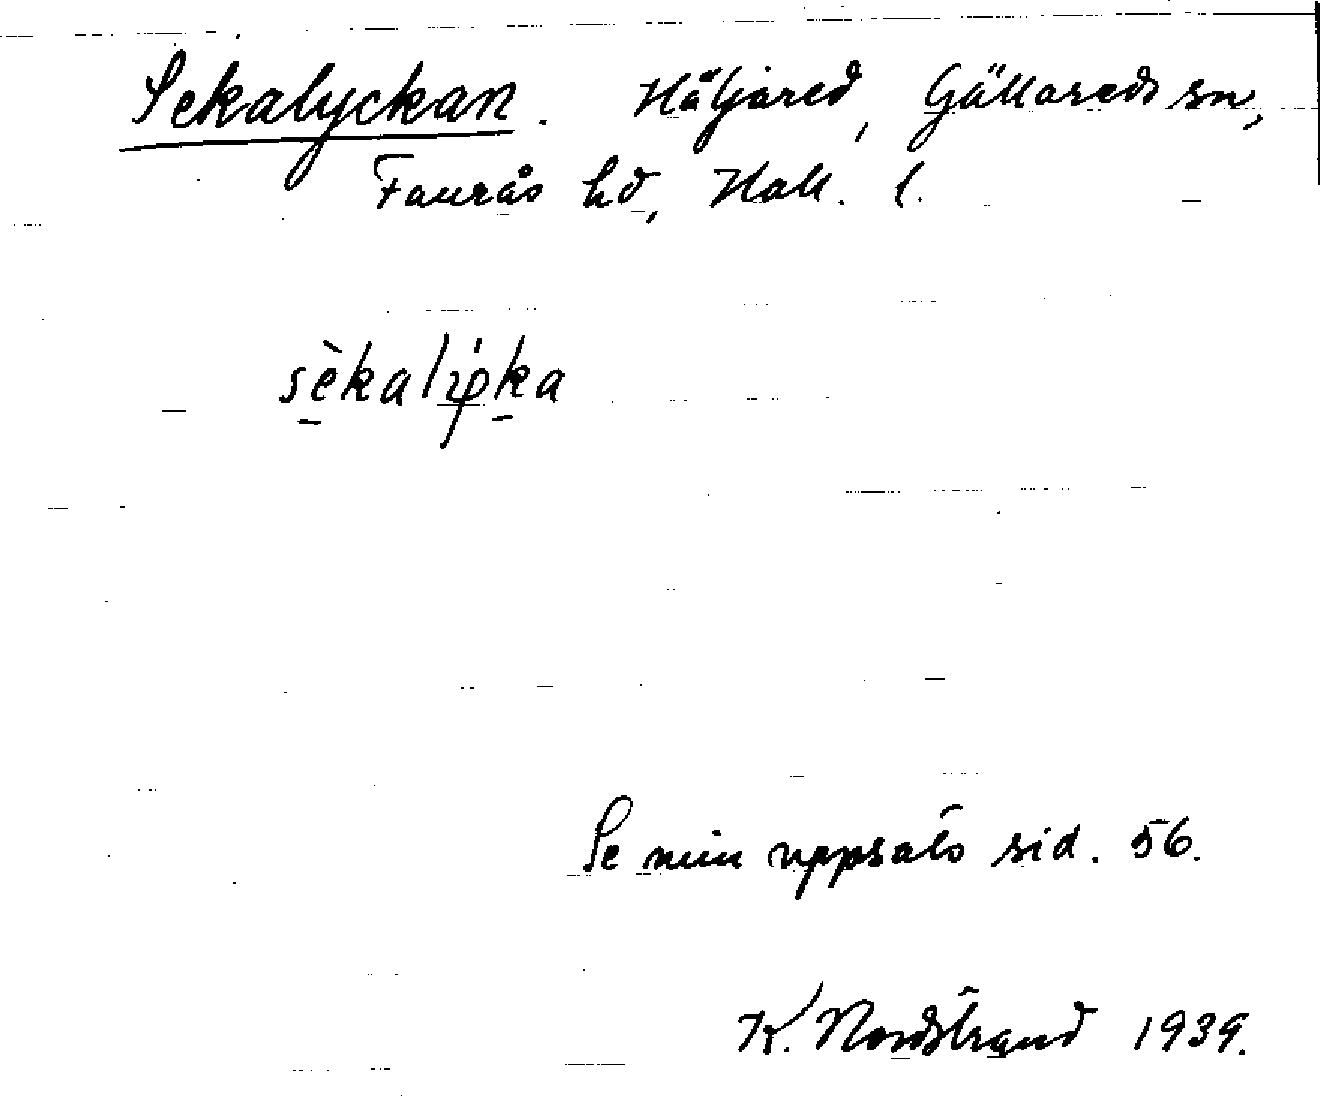 Sekalyckan. Häljared, Gällareds sn,
Faurås hd, Hall. l.
Se min uppsats sid. 56.
K. Nordstrand 1939.